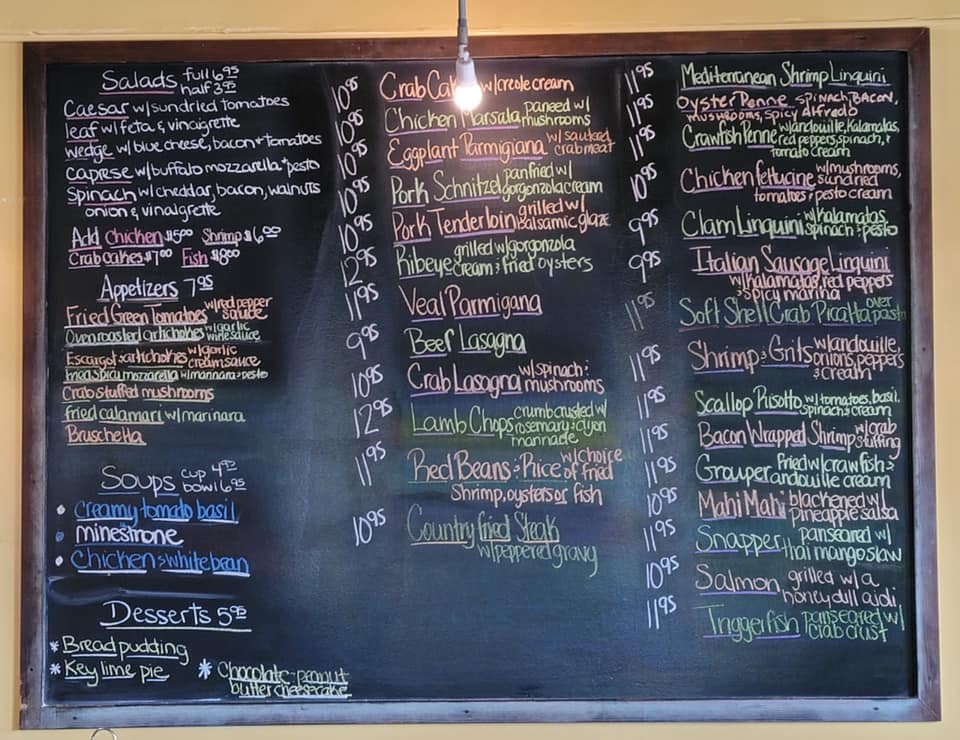 Salads full 6.95
half 3.95
Caesar w/sundried tomatoes
leaf w/feta & vinaigrette
wedge w/blue cheese, bacon + tomatoes
Caprese w/buffalo mozzarella + pesto
Spinach w/cheddar, bacon, walnuts
onion & vinaigrette
Add Chicken $5.00 Shrimp $6.00
Crab cakes $7.00 Fish $8.00
Appetizers 7.95
Fried Green Tomatoes w/red pepper
sauce
Oven roasted artichokes w/garlic
wine sauce
Escargot & artichokes w/garlic
cream sauce
fried spicy mozzarella w/marinara + pesto
Crab stuffed mushrooms
fried calamari w/marinara
Bruschetta
Soups cup 4.95
bowl 6.95
• Creamy tomato basil
• minestrone
• Chicken & white bean
Desserts 5.95
* Bread pudding
* Key lime pie
* Chocolate-peanut
butter cheesecake
10.95 Crab Cak w/creole cream
10.95 Chicken Marsala paneed w/
mushrooms
10.95 Eggplant Parmigiana w/sauteed
crabmeat
10.95 Pork Schnitzel panfried w/
gorgonzola cream
10.95 Pork Tenderloin grilled w/
balsamic glaze
12.95 Ribeye grilled w/gorgonzola
cream & fried oysters
11.95 Veal Parmigana
9.95 Beef Lasagna
10.95 Crab Lasagna w/spinach &
mushrooms
12.95 Lamb Chops crumb crusted w/
rosemary & dijon
marinade
11.95 Red Beans & Rice w/choice
of fried
Shrimp, oysters or fish
10.95 Country fried Steak
w/peppered gravy
11.95 Mediterranean Shrimp Linguini
11.95 Oyster Penne spinach, bacon,
mushrooms, spicy Alfredo
11.95 Crawfish Penne w/andouille, Kalamatas,
red peppers, spinach, &
tomato cream
10.95 Chicken fettucine w/mushrooms,
sundried
tomatoes & pesto cream
9.95 Clam Linguini w/kalamatas,
spinach & pesto
9.95 Italian Sausage Linguini
w/kalamatas, red peppers
& spicy marina
11.95 Soft Shell Crab Picatta over
pasta
11.95 Shrimp & Grits w/andouille,
onions, peppers
& cream
11.95 Scallop Risotto w/tomatoes, basil,
spinach & cream
11.95 Bacon Wrapped Shrimp w/crab
stuffing
11.95 Grouper fried w/crawfish &
andouille cream
10.95 Mahi Mahi blackened w/
pineapple salsa
11.95 Snapper panseared w/
thai mango slaw
10.95 Salmon grilled w/a
honey dill aioli
11.95 Triggerfish panseared w/
crab crust